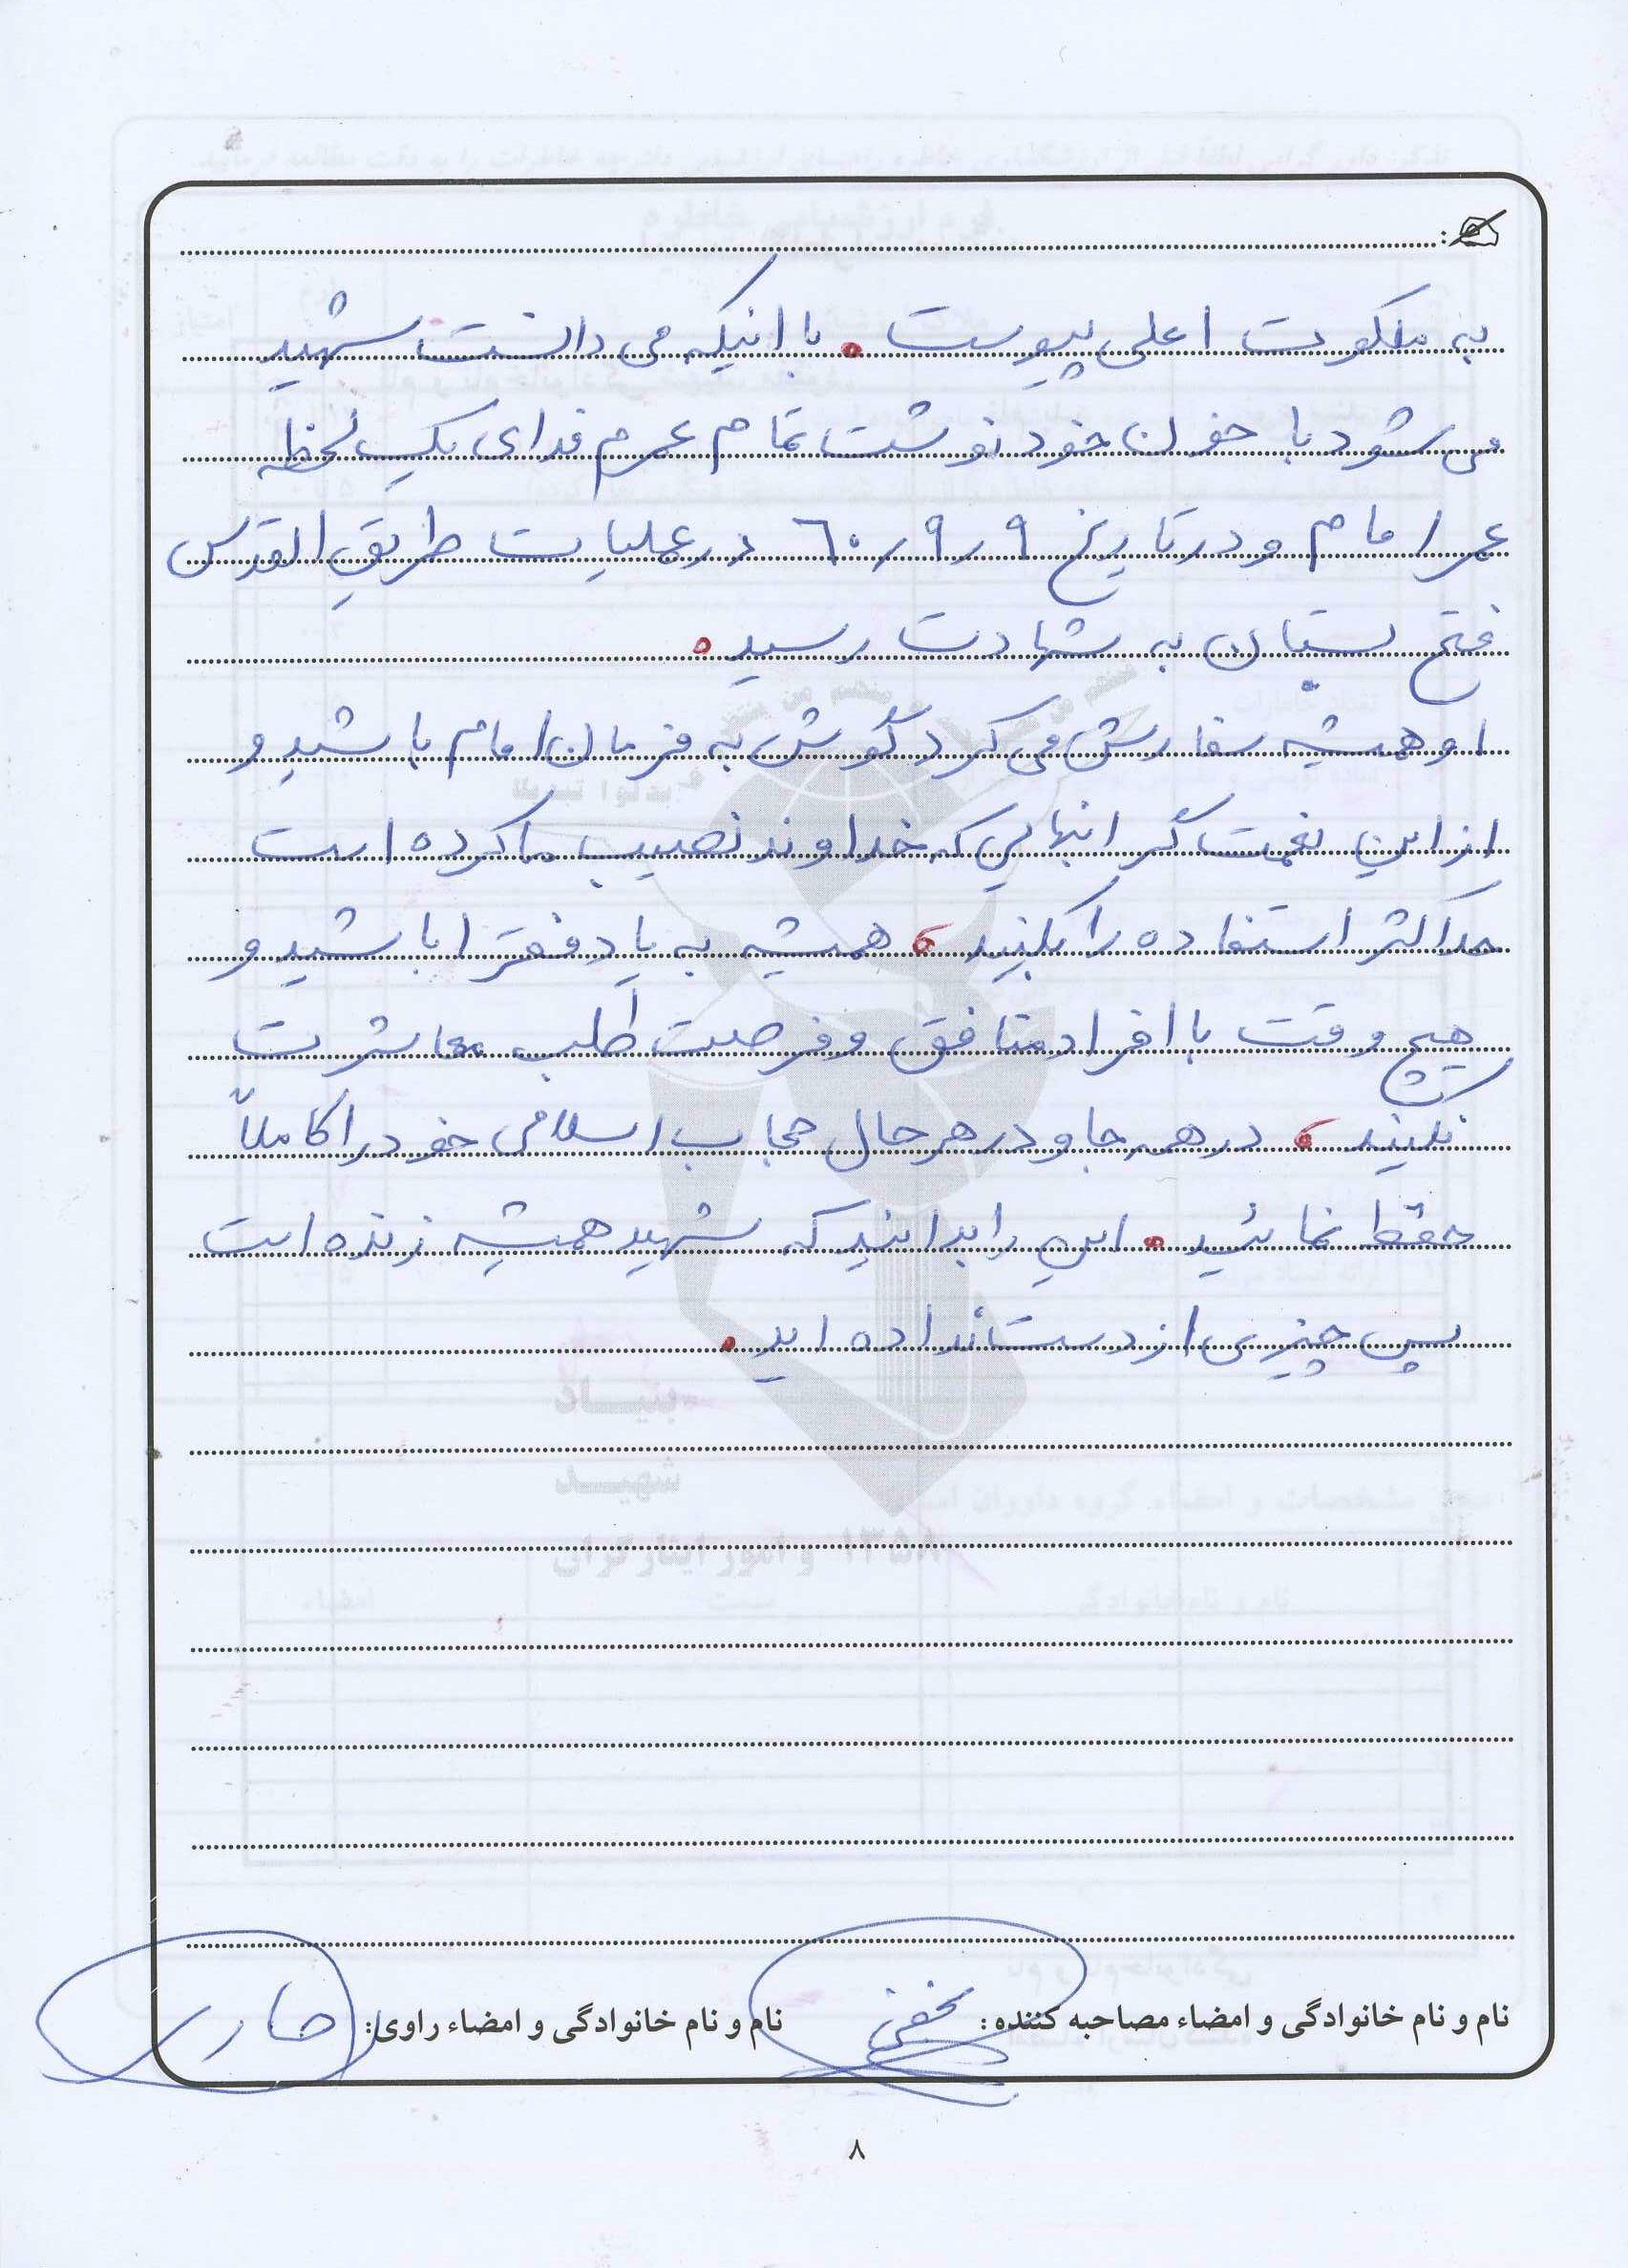 به ملکوت اعلی پیوست . با اینکه می دانست شهید
می شود با خون خود نوشت تمام عمرم فدای یک لحظه
عمر امام و در تاریخ ۶۰/۹/۹ در عملیات طریق القدس
فتح بستان به شهادت رسید .
او همیشه سفارش می کرد گوش به فرمان امام باشید و
از این نعمت گرانبهایی که خداوند نصیب ما کرده است
حداکثر استفاده را بکنید ، همیشه به یاد فقرا باشید و
هیچ وقت با افراد منافق و فرصت طلب معاشرت
نکنید ، در همه جا و در هر حال حجاب اسلامی خود را کاملاً
حفظ نمائید . این را بدانید که شهید همیشه زنده است
پس چیزی از دست نداده اید .
بنیاد
شهید
و امور ایثارگران ۱۳۵۸
نام و نام خانوادگی و امضاء مصاحبه کننده: نام و نام خانوادگی و امضاء راوی:
۸